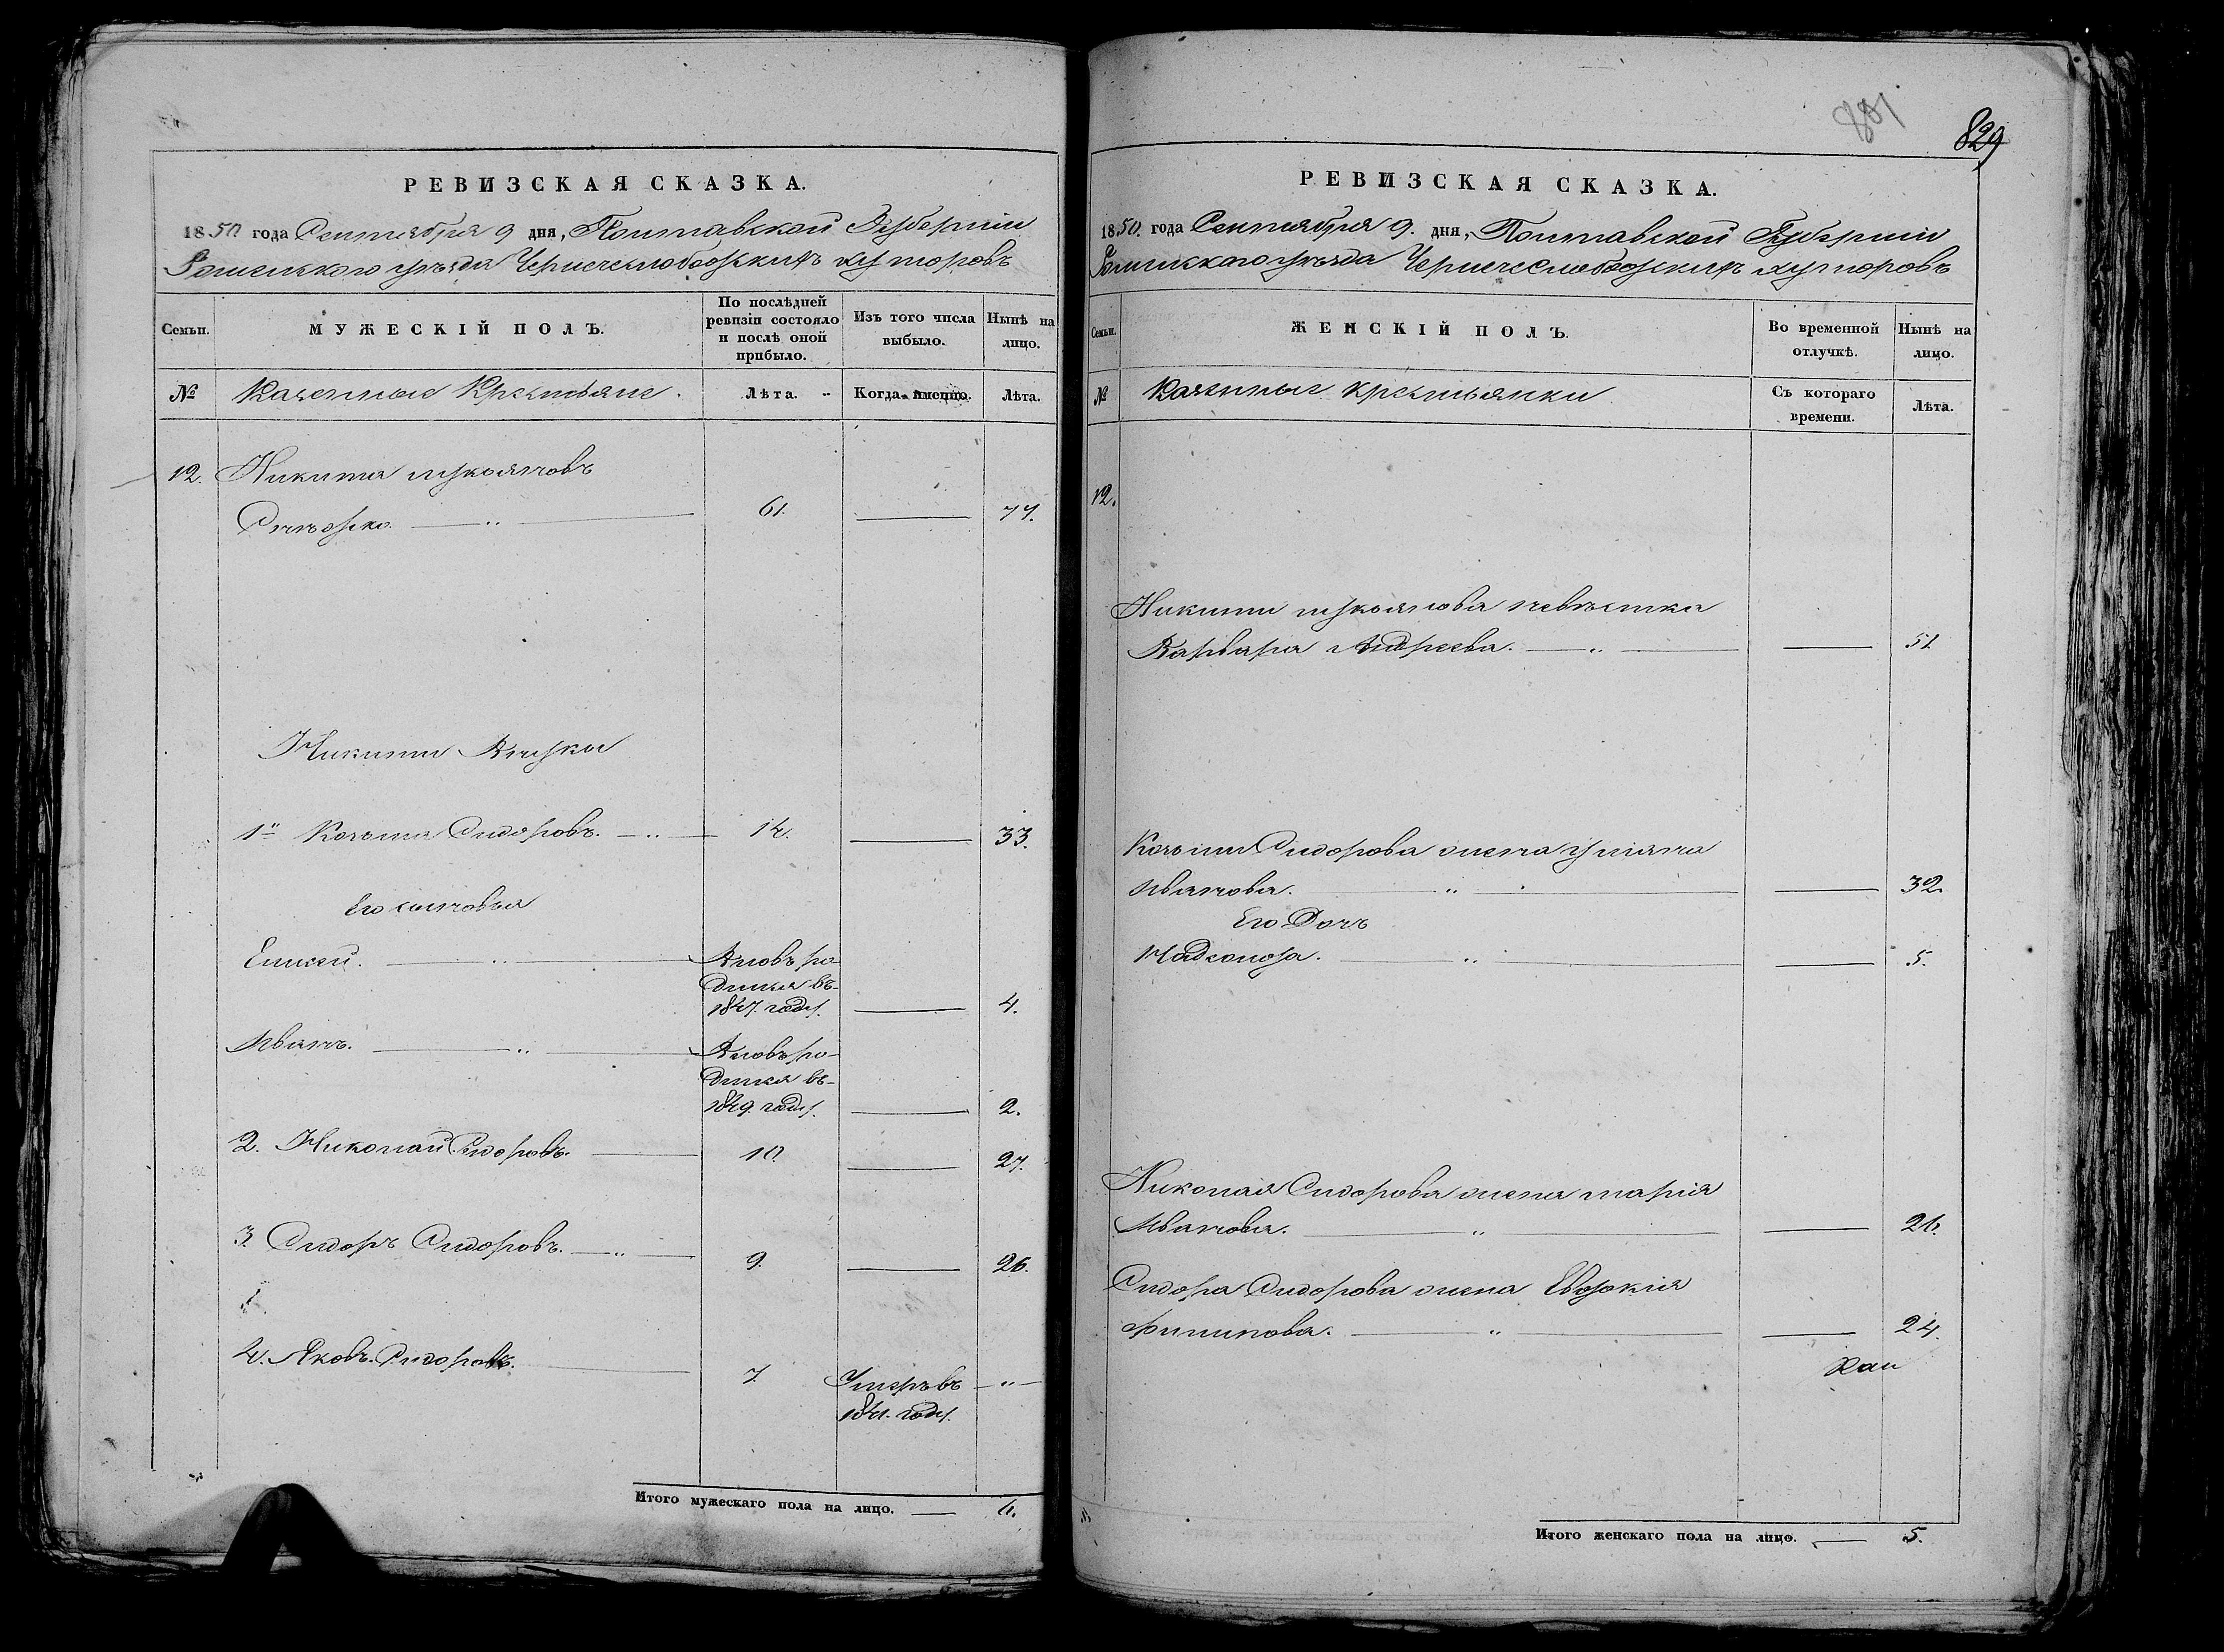 РЕВИЗСКАЯ СКАЗКА.
1850 года Сентября 9 дня, Полтавской Губернии
Роменского уѣзда Чернечеслободскихъ хуторовъ
Семьи.
МУЖЕСКІЙ ПОЛЪ.
По послѣдней
ревизіи состояло
и послѣ оной
прибыло.
Изъ того числа
выбыло.
Нынѣ на
лицо.
№
Казенные Крестьяне.
Лѣта.
Когда именно.
Лѣта.
12. Никита Лукьяновъ
61. 77.
Никиты Внуки
1й Козьма Сидоровъ. 14. 33.
Его сыновья
Елисей. Вновь ро-
дился въ
1847. году. 4.
Иванъ. Вновь ро-
дился въ
1849. году. 2.
2. Николай Сидоровъ. 10. 27.
3. Сидоръ Сидоровъ. 9. 26.
4. Яковъ Сидоровъ. 7. Умеръ въ
1841. году.
Итого мужескаго пола на лицо. 6.
829
РЕВИЗСКАЯ СКАЗКА.
1850. года Сентября 9. дня, Полтавской Губерніи
Роменского уѣзда Чернечеслободскихъ хуторовъ
Семьи.
ЖЕНСКІЙ ПОЛЪ.
Во временной
отлучкѣ.
Нынѣ на
лицо.
№
Казенные крестьянки
Съ котораго
времени.
Лѣта.
12.
Никиты Лукьянова невѣстка
Варвара Андреева. 51.
Козьмы Сидорова жена Ульяна
Иванова. 32.
Его Дочь
5.
Николая Сидорова жена Марія
Иванова. 26.
Сидора Сидорова жена Евдокія
Филипова. 24.
Итого женскаго пола на лицо. 5.